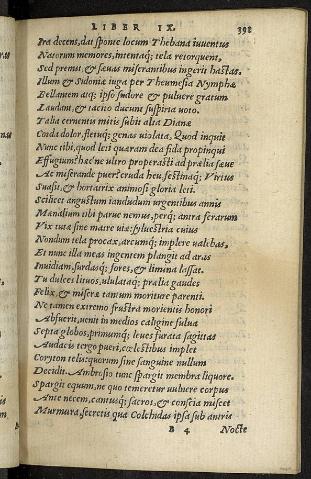 LIBER IX. 392
Ira decens, dat sponte locum Thebana iuuentus
Natorum memores, intentaq; tela retorquent,
Sed premit, & sæuas miserantibus ingerit hastas.
Illum & Sidoniæ iuga per Theumesia Nymphæ
Bellantem atq; ipso sudore & puluere gratum
Laudant, & tacito ducunt suspiria uoto.
Talia cernenti mitis subit alta Dianæ
Corda dolor, fletuq; genas uiolata, Quod inquit
Nunc tibi, quod leti quæram dea fida propinqui
Effugium? hæc'ne ultro properasti ad prælia sæue
Ac miserande puer? cruda heu, festinaq; Virtus
Suasit, & hortatrix animosi gloria leti.
Scilicet angustum iandudum urgentibus annis
Mænalium tibi parue nemus, perq; antra ferarum
Vix tuta sine matre uiæ: syluestria cuius
Nondum tela procax, arcumq; implere ualebas.
Et nunc illa meas ingentem plangit ad aras
Inuidiam, surdasq; fores, & limina lassat.
Tu dulces lituos, ululataq; prælia gaudes
Felix, & miseræ tantum moriture parenti.
Ne tamen extremo frustra morientis honori
Abfuerit, uenit in medios caligine fulua
Septa globos, primumq; leues furata sagittas
Audacis tergo pueri, cœlestibus implet
Coryton telis, quorum sine sanguine nullum
Decidit. Ambrosio tunc spargit membra liquore.
Spargit equum, ne quo temeretur uulnere corpus
Ante necem, cantusq; sacros, & conscia miscet
Murmura, secretis quæ Colchidas ipsa sub antris
B 4 Nocte